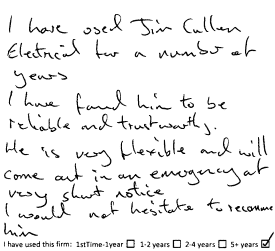 I have used Jim Cullen
Electrical for a number of
years
I have found him to be
reliable and trustworthy.
He is very flexible and will
come out in an emergency at
very short notice
I would not hesitate to recommend
him
I have used this firm: 1stTime-1year ☐ 1-2 years ☐ 2-4 years ☐ 5+ years ☑